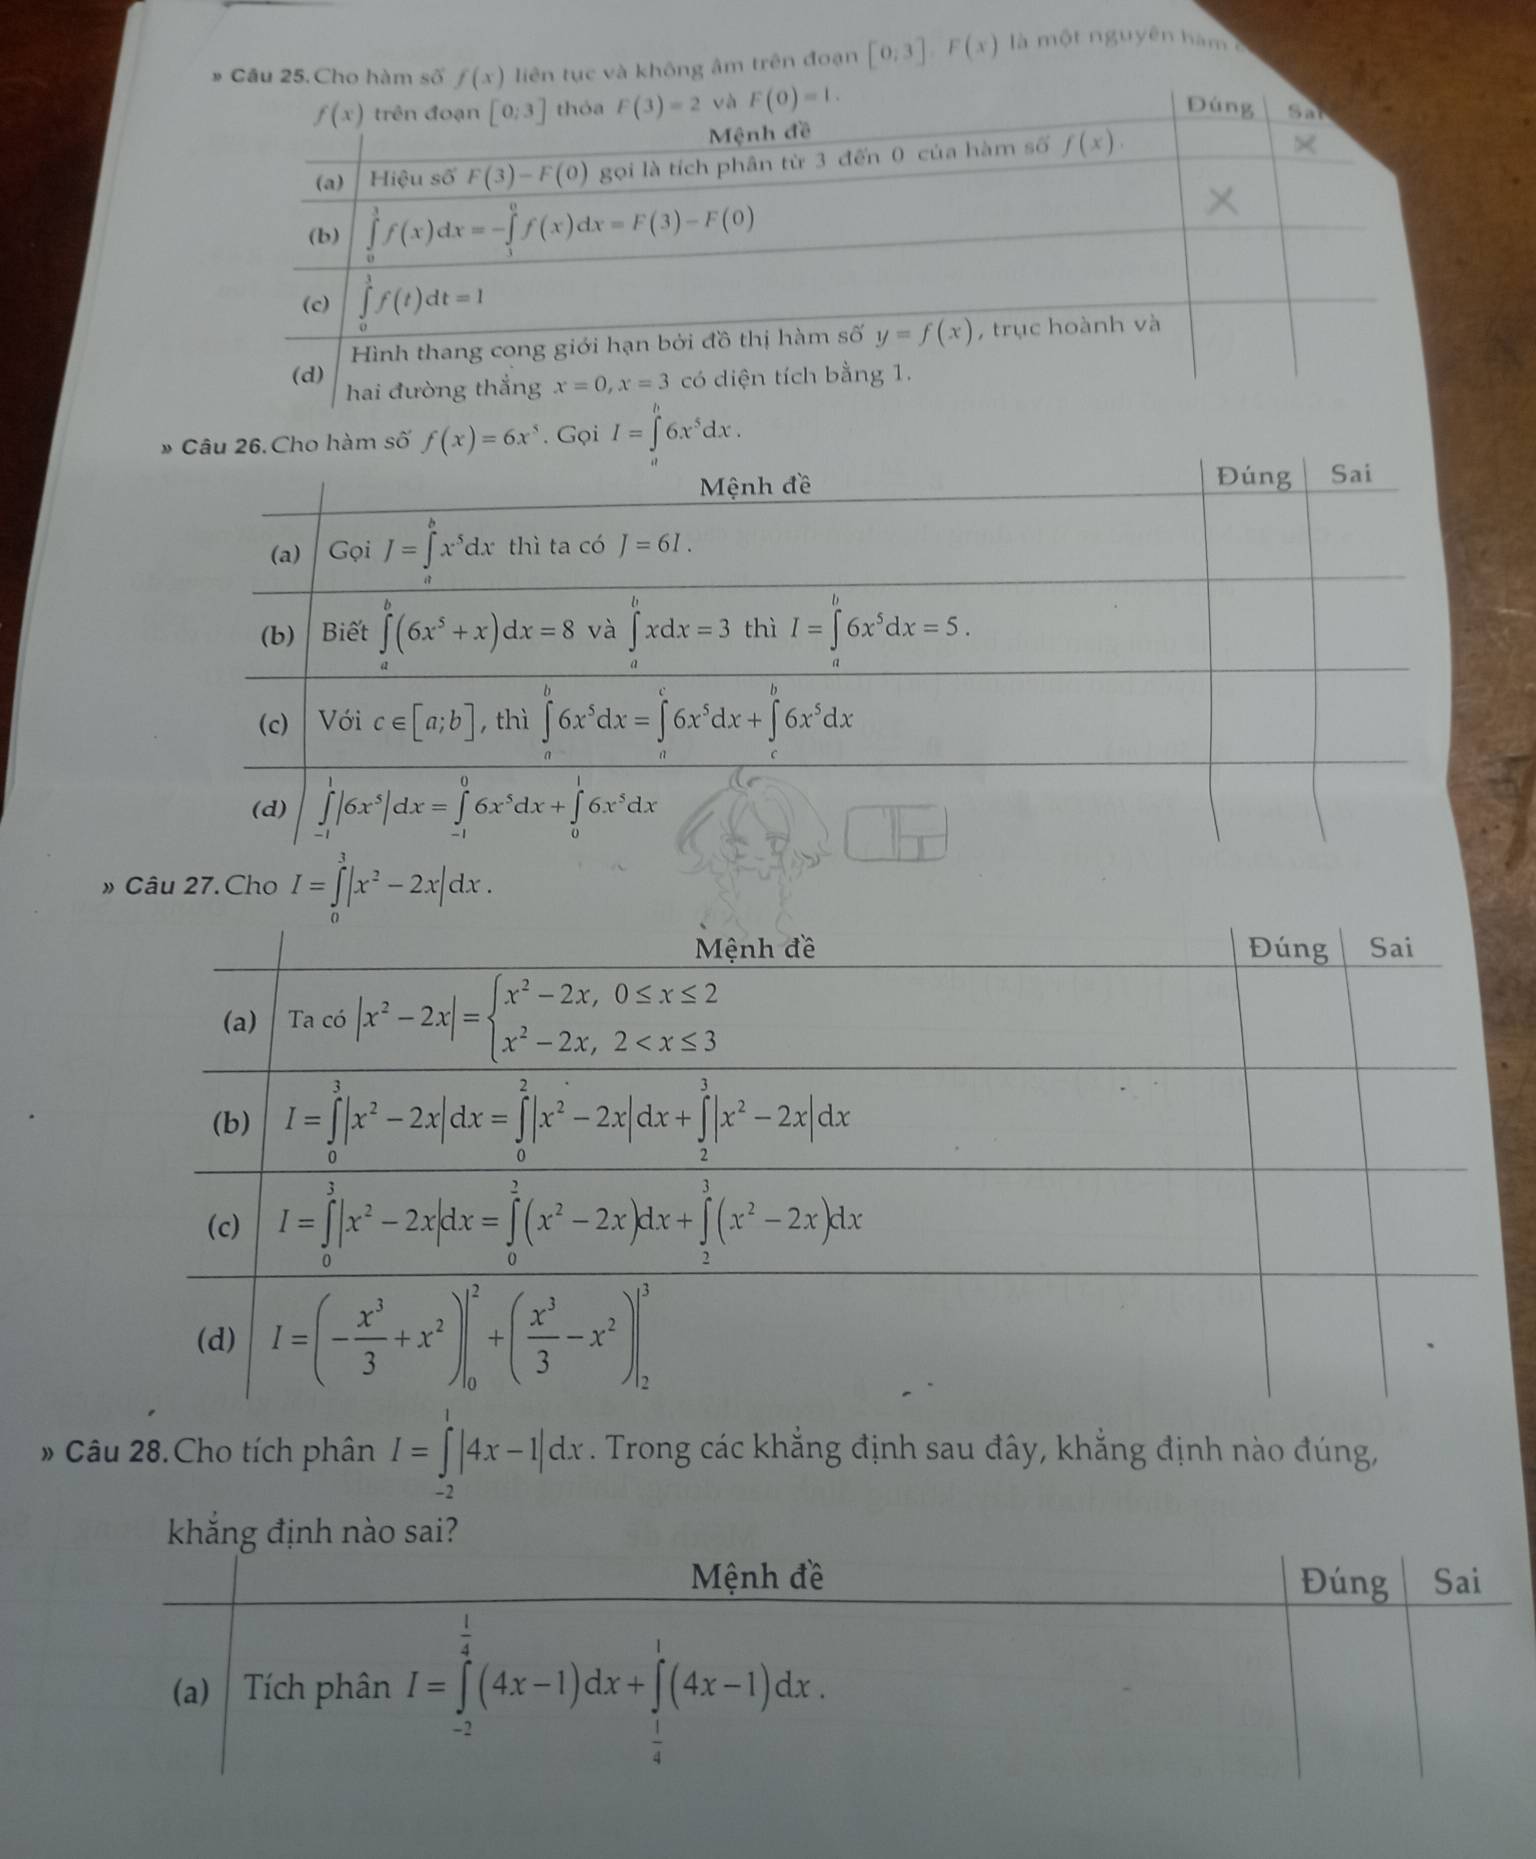 » Câu 25. Cho hàm số f(x) liên tục và không âm trên đoạn [0;3]. F(x) là một nguyên hàm
f(x) trên đoạn [0;3] thỏa F(3) = 2 và F(0) = 1.
Mệnh đề Đúng Sai
(a) Hiệu số F(3) − F(0) gọi là tích phân từ 3 đến 0 của hàm số f(x).
(b) ∫_0^3 f(x)dx = −∫_3^0 f(x)dx = F(3) − F(0)
(c) ∫_0^3 f(t)dt = 1
(d) Hình thang cong giới hạn bởi đồ thị hàm số y = f(x), trục hoành và
hai đường thẳng x = 0, x = 3 có diện tích bằng 1.
» Câu 26. Cho hàm số f(x) = 6x^5. Gọi I = ∫_a^b 6x^5dx.
Mệnh đề Đúng Sai
(a) Gọi J = ∫_a^b x^5dx thì ta có J = 6I.
(b) Biết ∫_a^b (6x^5 + x)dx = 8 và ∫_a^b xdx = 3 thì I = ∫_a^b 6x^5dx = 5.
(c) Với c ∈ [a;b], thì ∫_a^b 6x^5dx = ∫_a^c 6x^5dx + ∫_c^b 6x^5dx
(d) ∫_{-1}^1 |6x^5|dx = ∫_{-1}^0 6x^5dx + ∫_0^1 6x^5dx
» Câu 27. Cho I = ∫_0^3 |x^2 − 2x|dx.
Mệnh đề Đúng Sai
(a) Ta có |x^2 − 2x| = { x^2 − 2x, 0 ≤ x ≤ 2
x^2 − 2x, 2 < x ≤ 3
(b) I = ∫_0^3 |x^2 − 2x|dx = ∫_0^2 |x^2 − 2x|dx + ∫_2^3 |x^2 − 2x|dx
(c) I = ∫_0^3 |x^2 − 2x|dx = ∫_0^2 (x^2 − 2x)dx + ∫_2^3 (x^2 − 2x)dx
(d) I = (−x^3/3 + x^2)|_0^2 + (x^3/3 − x^2)|_2^3
» Câu 28. Cho tích phân I = ∫_{-2}^1 |4x − 1|dx. Trong các khẳng định sau đây, khẳng định nào đúng,
khẳng định nào sai?
Mệnh đề Đúng Sai
(a) Tích phân I = ∫_{-2}^{1/4} (4x − 1)dx + ∫_{1/4}^1 (4x − 1)dx.